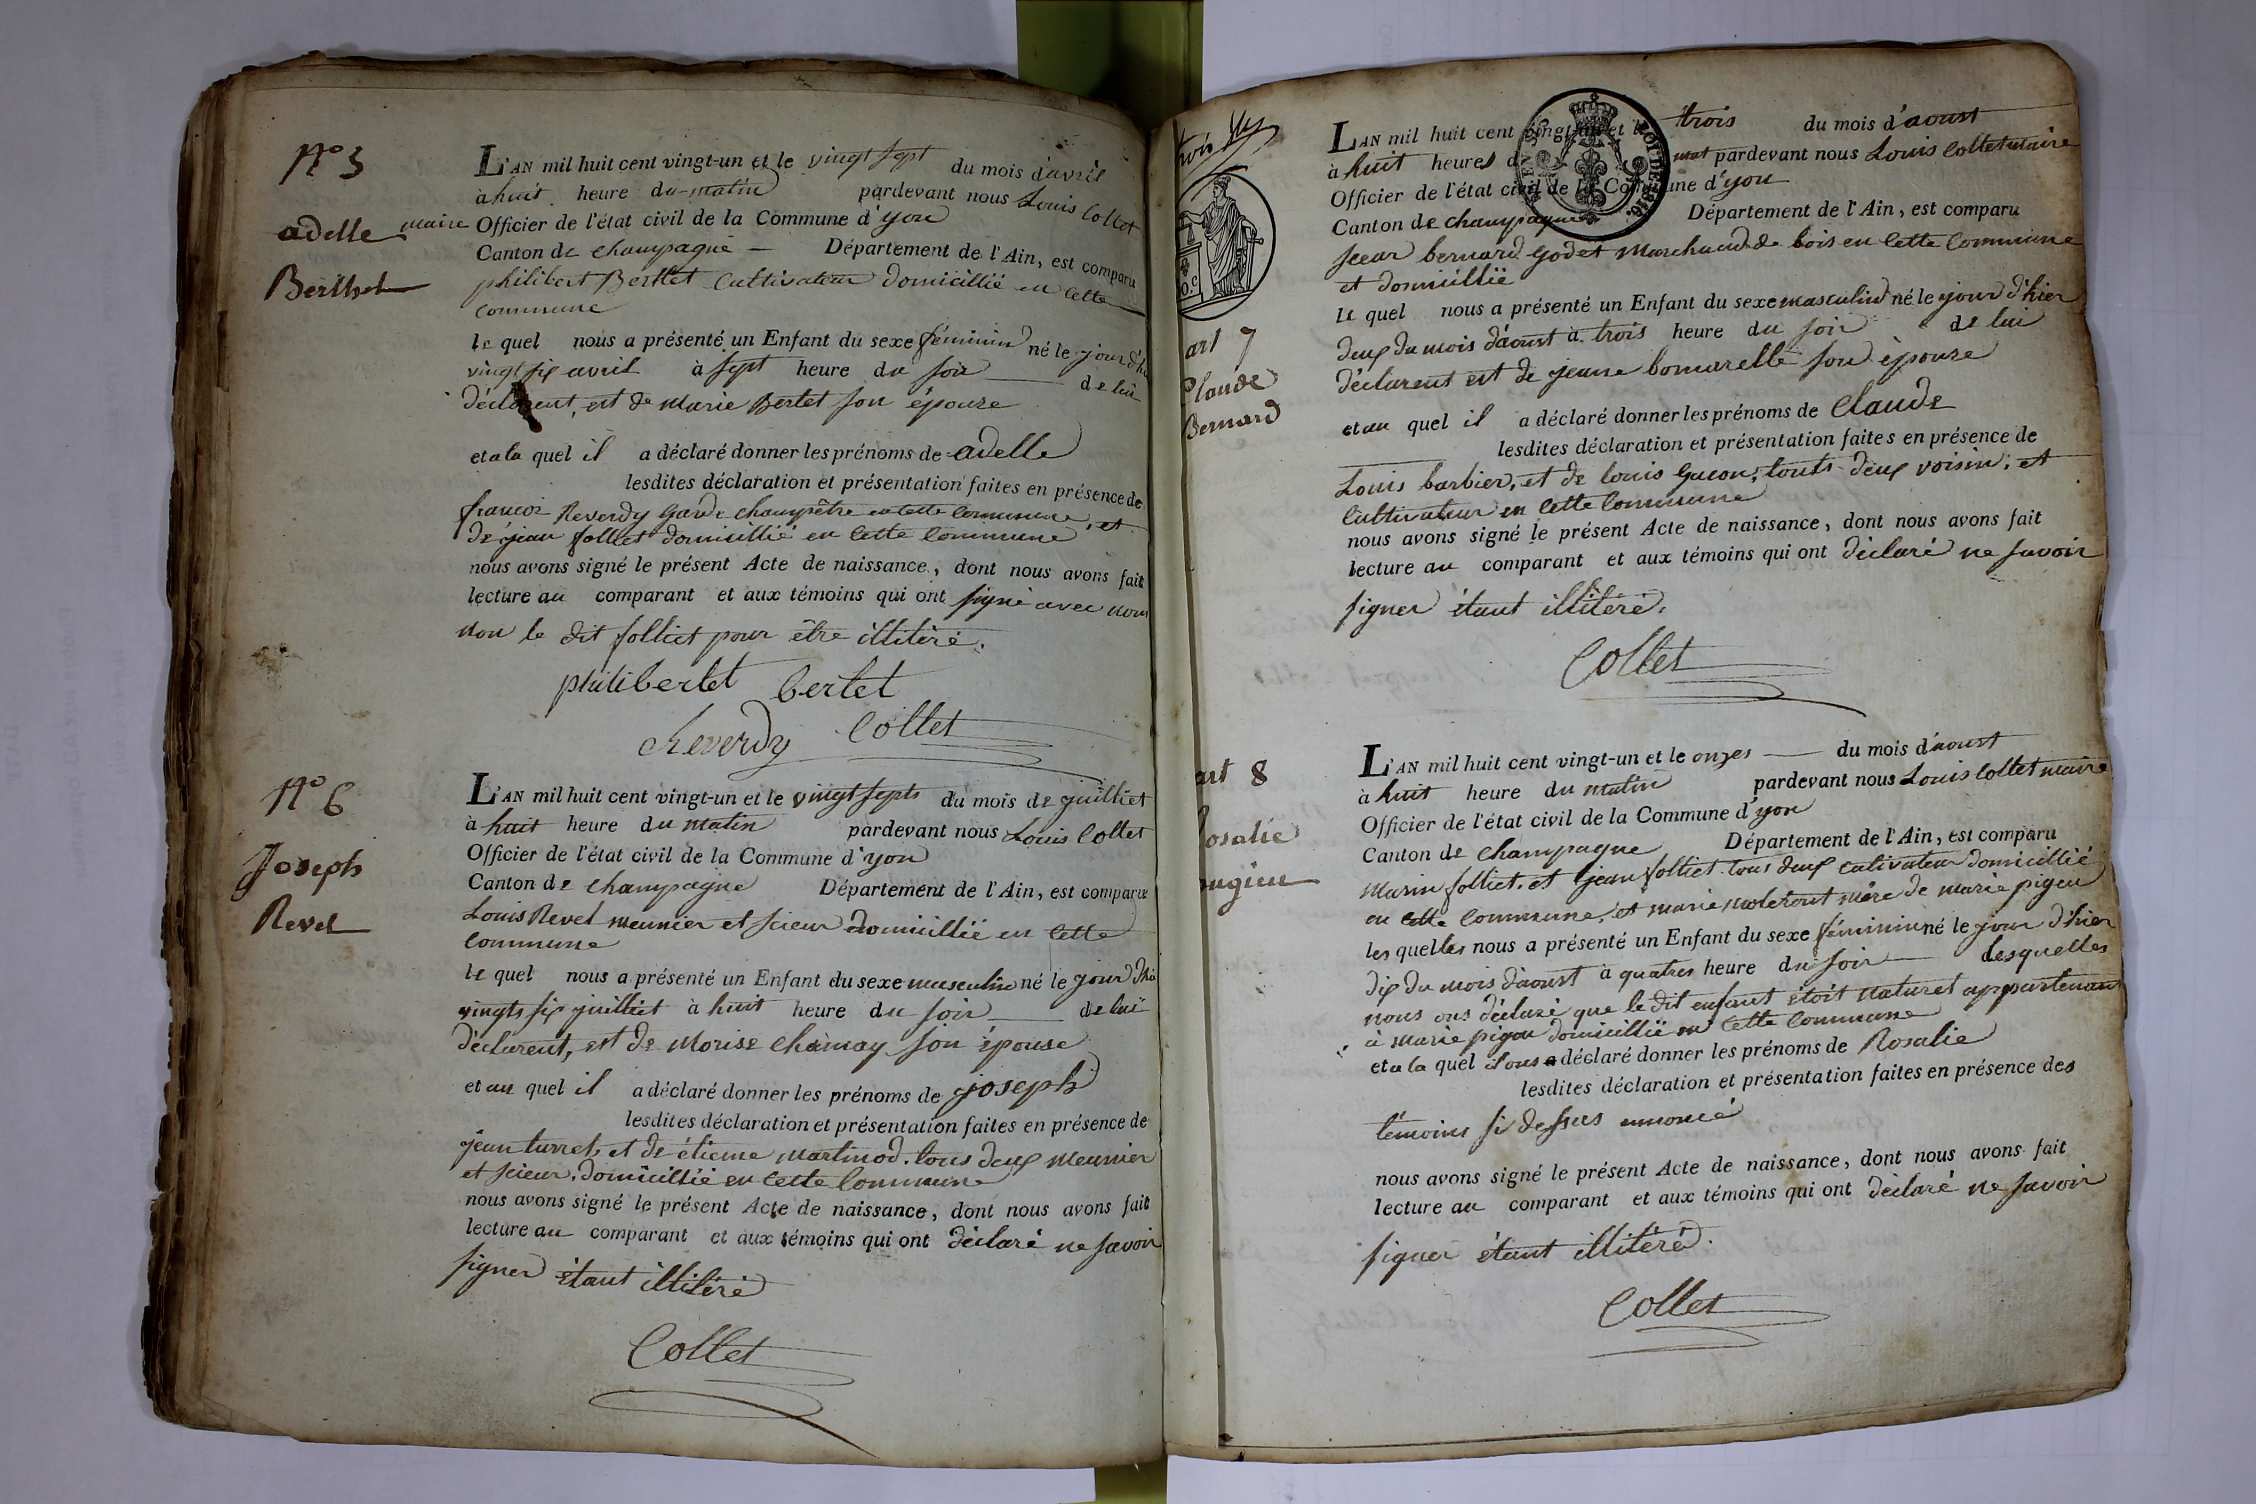 N° 5
adelle
Berthet
L'AN mil huit cent vingt-un et le vingt sept du mois d'avril
à huit heure du matin pardevant nous Louis Collet
maire Officier de l'état civil de la Commune d'yon
Canton de champagne Département de l'Ain, est comparu
philibert Bertet Cultivateur domicillié en Cette
commune
le quel nous a présenté un Enfant du sexe féminin né le jour d'hier
vingt six avril à sept heure du soir de lui
déclarent, est de marie Bertet son épouze
et a la quel il a déclaré donner les prénoms de adelle
lesdites déclaration et présentation faites en présence de
francoi Reverdy Garde champêtre en cette commune, et
de jean folliet domicillié en Cette Commune
nous avons signé le présent Acte de naissance, dont nous avons fait
lecture au comparant et aux témoins qui ont signé avec nous
non le dit folliet pour être illitéré.
philibertet bertet
Reverdy Collet
N° 6
Joseph
Revet
L'AN mil huit cent vingt-un et le vingt septs du mois de juilliet
à huit heure du matin pardevant nous Louis Collet
Officier de l'état civil de la Commune d'yon
Canton de Champagne Département de l'Ain, est comparu
Louis Revet meunier et scieur domicillié en Cette
Commune
le quel nous a présenté un Enfant du sexe masculin né le jour d'hier
vingts six juilliet à huit heure du soir de lui
déclarent, est de Morise Chamay son épouse
et au quel il a déclaré donner les prénoms de joseph
lesdites déclaration et présentation faites en présence de
jean turret, et de étienne martinod. tous deux Meunier
et scieur, domicillié en Cette Commune
nous avons signé le présent Acte de naissance, dont nous avons fait
lecture au comparant et aux témoins qui ont déclaré ne savoir
signer étant illitéré
Collet
art 7
Claude
Bernard
L'AN mil huit cent vingt-un et le trois du mois d'aoust
à huit heures du mat pardevant nous Louis Collet maire
Officier de l'état civil de la Commune d'yon
Canton de champagne Département de l'Ain, est comparu
sieur bernard godet Marchand de bois en Cette Commune
et domicillié
le quel nous a présenté un Enfant du sexe masculin né le jour d'hier
deux du mois d'aoust à trois heure du soir de lui
déclarent est de jeanne bomarelle son épouze
et au quel il a déclaré donner les prénoms de Claude
lesdites déclaration et présentation faites en présence de
Louis barbier, et de louis touts deux voisin, et
Cultivateur en Cette Commune
nous avons signé le présent Acte de naissance, dont nous avons fait
lecture au comparant et aux témoins qui ont déclaré ne savoir
signer étant illitéré.
Collet
art 8
osalie
ugieu
L'AN mil huit cent vingt-un et le onzes du mois d'aoust
à huit heure du matin pardevant nous Louis Collet maire
Officier de l'état civil de la Commune d'yon
Canton de Champagne Département de l'Ain, est comparu
Marin folliet. et jean folliet tous deux cultivateur domicillié
en cette Commune, et marie moleront mère de marie pigeu
les quelles nous a présenté un Enfant du sexe féminin né le jour d'hier
dix du mois d'aoust à quatres heure du soir lesquelles
nous ons déclaré que le dit enfant étoit naturel appartenant
à marie pigeu domicillié en Cette Commune
et a la quel ilons a déclaré donner les prénoms de Rosalie
lesdites déclaration et présentation faites en présence des
témoins si dessus énoncé
nous avons signé le présent Acte de naissance, dont nous avons fait
lecture au comparant et aux témoins qui ont déclaré ne savoir
signer étant illitéré.
Collet